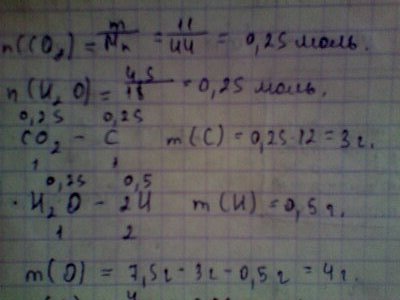 n(CO₂) = m/Mr = 11/44 = 0,25 моль.
n(H₂O) = 4,5/18 = 0,25 моль.
0,25 0,25
CO₂ – C m(C) = 0,25·12 = 3г.
1 1
0,25 0,5
H₂O – 2H m(H) = 0,5г.
1 2
m(O) = 7,5г - 3г - 0,5г = 4г.